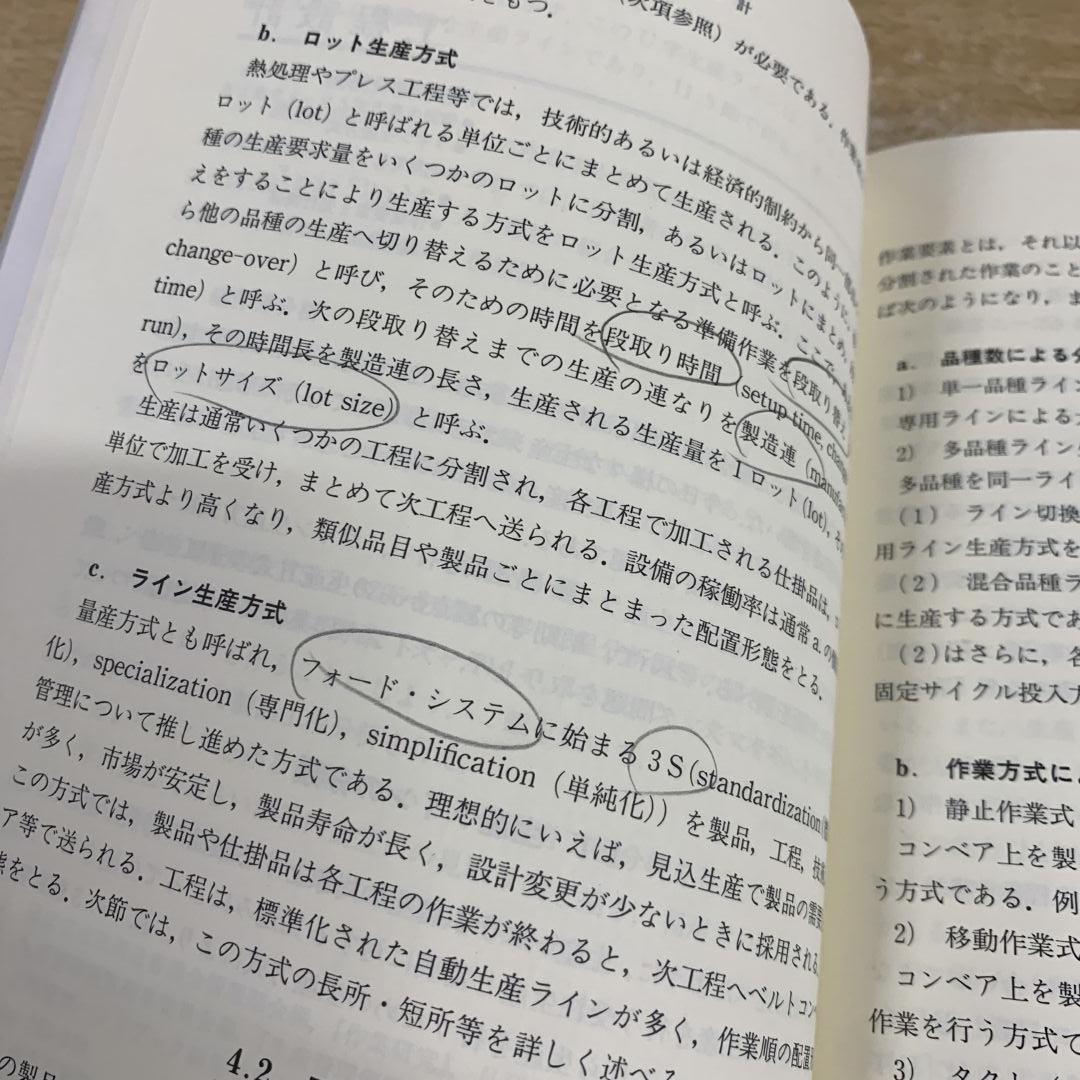 計
をもつ．
（次項参照）が必要である．作業
b. ロット生産方式
熱処理やプレス工程等では，技術的あるいは経済的制約から同一
ロット（lot）と呼ばれる単位ごとにまとめて生産される．このように，
種の生産要求量をいくつかのロットに分割，あるいはロットにまとめ，
えをすることにより生産する方式をロット生産方式と呼ぶ．ここで，
ら他の品種の生産へ切り替えるために必要となる準備作業を段取り替え
change-over）と呼び，そのための時間を段取り時間（setup time, change
time）と呼ぶ．次の段取り替えまでの生産の連なりを製造連（manufa
run），その時間長を製造連の長さ，生産される生産量を1ロット（lot），そ
をロットサイズ（lot size）と呼ぶ．
生産は通常いくつかの工程に分割され，各工程で加工される仕掛品は，
単位で加工を受け，まとめて次工程へ送られる．設備の稼働率は通常a.の
産方式より高くなり，類似品目や製品ごとにまとまった配置形態をとる．
c. ライン生産方式
量産方式とも呼ばれ，フォード・システムに始まる3S（standardization
化），specialization（専門化），simplification（単純化））を製品，工程，技術
管理について推し進めた方式である．理想的にいえば，見込生産で製品の需要
が多く，市場が安定し，製品寿命が長く，設計変更が少ないときに採用される．
この方式では，製品や仕掛品は各工程の作業が終わると，次工程へベルトコン
ア等で送られる．工程は，標準化された自動生産ラインが多く，作業順の配置
態をとる．次節では，この方式の長所・短所等を詳しく述べる
4.2
の製品
作業要素とは，それ以
分割された作業のこと
ば次のようになり，ま
a. 品種数による分
1) 単一品種ライン
専用ラインによる
2) 多品種ライン
多品種を同一ライ
（1） ライン切換
用ライン生産方式を
（2） 混合品種ラ
に生産する方式であ
（2）はさらに，各
固定サイクル投入方
b. 作業方式に
1) 静止作業式
コンベア上を製
う方式である．例
2) 移動作業式
コンベア上を製
作業を行う方式で
3) タクト